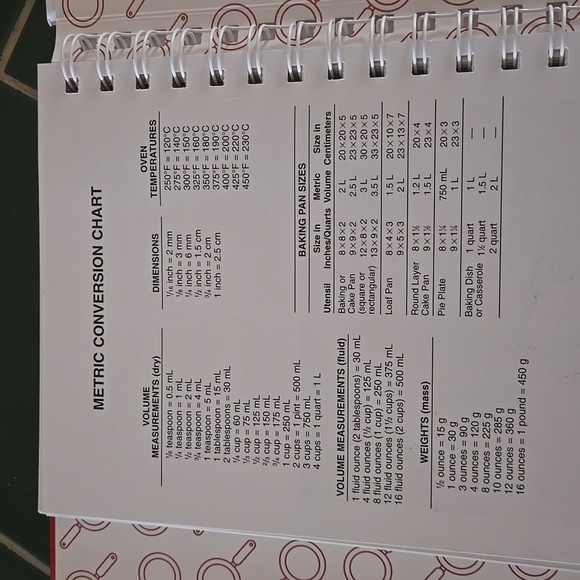 METRIC CONVERSION CHART
VOLUME
MEASUREMENTS (dry)
⅛ teaspoon = 0.5 mL
¼ teaspoon = 1 mL
½ teaspoon = 2 mL
¾ teaspoon = 4 mL
1 teaspoon = 5 mL
1 tablespoon = 15 mL
2 tablespoons = 30 mL
¼ cup = 60 mL
⅓ cup = 75 mL
½ cup = 125 mL
⅔ cup = 150 mL
¾ cup = 175 mL
1 cup = 250 mL
2 cups = 1 pint = 500 mL
3 cups = 750 mL
4 cups = 1 quart = 1 L
VOLUME MEASUREMENTS (fluid)
1 fluid ounce (2 tablespoons) = 30 mL
4 fluid ounces (½ cup) = 125 mL
8 fluid ounces (1 cup) = 250 mL
12 fluid ounces (1½ cups) = 375 mL
16 fluid ounces (2 cups) = 500 mL
WEIGHTS (mass)
½ ounce = 15 g
1 ounce = 30 g
3 ounces = 90 g
4 ounces = 120 g
8 ounces = 225 g
10 ounces = 285 g
12 ounces = 360 g
16 ounces = 1 pound = 450 g
DIMENSIONS
1/16 inch = 2 mm
⅛ inch = 3 mm
¼ inch = 6 mm
½ inch = 1.5 cm
¾ inch = 2 cm
1 inch = 2.5 cm
OVEN
TEMPERATURES
250°F = 120°C
275°F = 140°C
300°F = 150°C
325°F = 160°C
350°F = 180°C
375°F = 190°C
400°F = 200°C
425°F = 220°C
450°F = 230°C
BAKING PAN SIZES
Size in Metric Size in
Utensil Inches/Quarts Volume Centimeters
Baking or 8×8×2 2 L 20×20×5
Cake Pan 9×9×2 2.5 L 23×23×5
(square or 12×8×2 3 L 30×20×5
rectangular) 13×9×2 3.5 L 33×23×5
Loaf Pan 8×4×3 1.5 L 20×10×7
9×5×3 2 L 23×13×7
Round Layer 8×1½ 1.2 L 20×4
Cake Pan 9×1½ 1.5 L 23×4
Pie Plate 8×1¼ 750 mL 20×3
9×1¼ 1 L 23×3
Baking Dish 1 quart 1 L —
or Casserole 1½ quart 1.5 L —
2 quart 2 L —